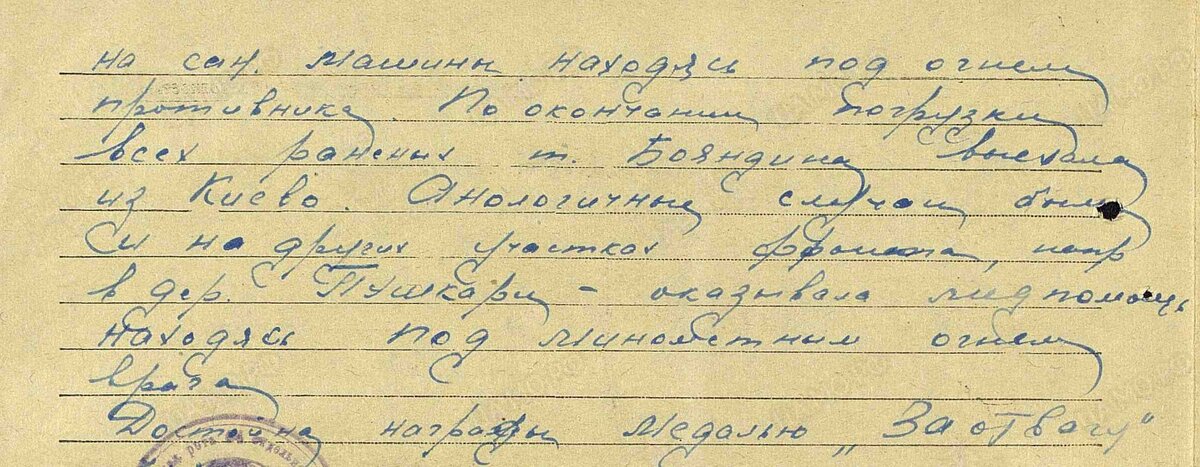 на сан. машины находясь под огнем
противника. По окончании погрузки
всех раненых т. Бояндина выехала
из Киево. Анологичные случаи были
и на других участках фронта, напр
в дер. Пушкари - оказывала медпомощь
находясь под минометным огнем
врага
Достойна награды медалью „За отвагу"